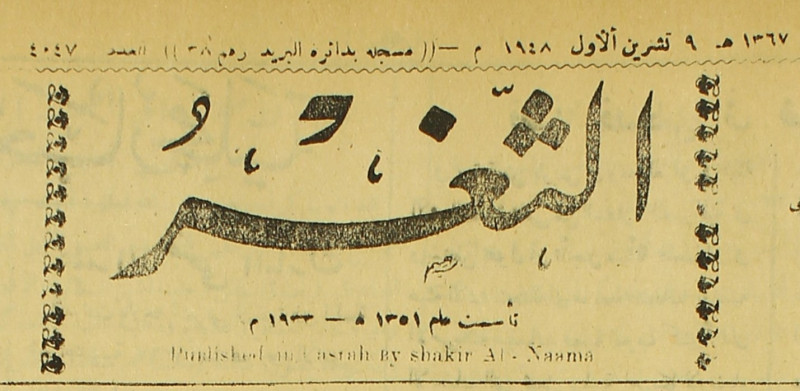 ١٣٦٧ هـ ٩ تشرين الاول ١٩٤٨ م —(( مسجله بدائرة البريد رقم ٣٨ )) العدد ٤٠٤٧
الثغر
تاسست عام ١٣٥١ ه — ١٩٣٣ م
Published in Basrah By shakir Al - Naama